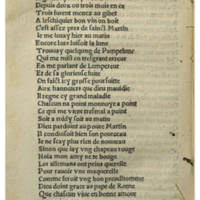 Depuis deux ou trois mois en ca
Trois furent menez au gibet
A leschiquier bon vin on boit
C'est assez pres de sainct Martin
Je me leuay hier au matin
Encore luy soit la lune
Trouuay quelquung de Pampelune
Qui me mist en tresgrant erreur
En me parlant de Lempereur
Et de sa glorieuse suite
On fait icy grosse poursuite
Aux hanniers que dieu mauldie
Il regne cy grand maladie
Chascun na point monnoye a point
Ce qui me vient tresmal a point
Soit a midy soit au matin
Dieu pardoint au poure Martin
Il conduisoit bien son poureau
Je ne scay plus rien de nouueau
Sinon que iay vng chapeau rouge
Hola mon amy ne te bouge
Les allemans ont peine querelle
Pour rauoir vne maquerelle
Comme seroit vng bon preudhomme
Dieu doint grace au pape de Romme
Que chascun viue en bonne amour